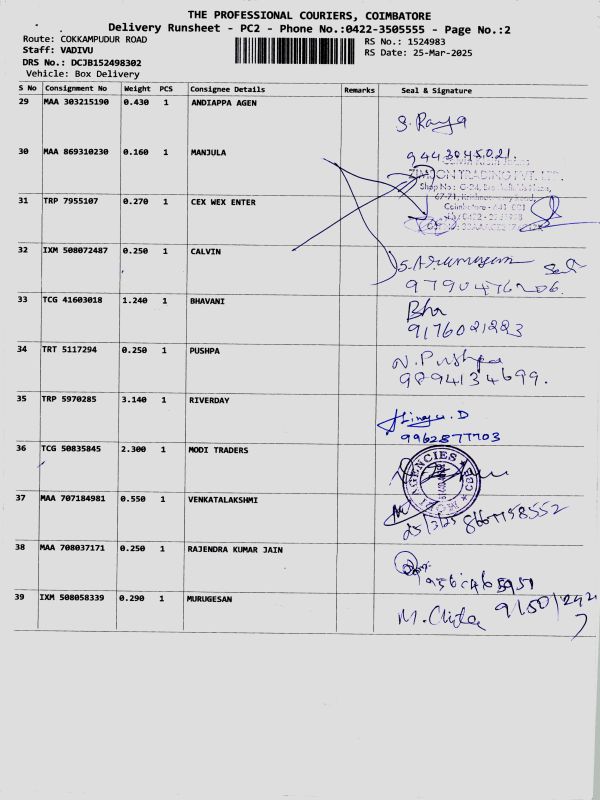 THE PROFESSIONAL COURIERS, COIMBATORE
Delivery Runsheet - PC2 - Phone No.:0422-3505555 - Page No.:2
Route: COKKAMPUDUR ROAD
RS No.: 1524983
Staff: VADIVU
RS Date: 25-Mar-2025
DRS No.: DCJB152498302
Vehicle: Box Delivery
S No Consignment No Weight PCS Consignee Details Remarks Seal & Signature
29 MAA 303215190 0.430 1 ANDIAPPA AGEN
S. Raya
30 MAA 869310230 0.160 1 MANJULA
9443045021.
ZIMSON TRADING PVT. LTD.
31 TRP 7955107 0.270 1 CEX WEX ENTER
Coimbatore - 641 001
32 IXM 508072487 0.250 1 CALVIN
S. Arumugam
9790476206.
33 TCG 41603018 1.240 1 BHAVANI
9176021223
34 TRT 5117294 0.250 1 PUSHPA
N. Pushpa
9894134699.
35 TRP 5970285 3.140 1 RIVERDAY
9962877703
36 TCG 50835845 2.300 1 MODI TRADERS
AGENCIES
MODI
37 MAA 707184981 0.550 1 VENKATALAKSHMI
25/3/25
38 MAA 708037171 0.250 1 RAJENDRA KUMAR JAIN
39 IXM 508058339 0.290 1 MURUGESAN